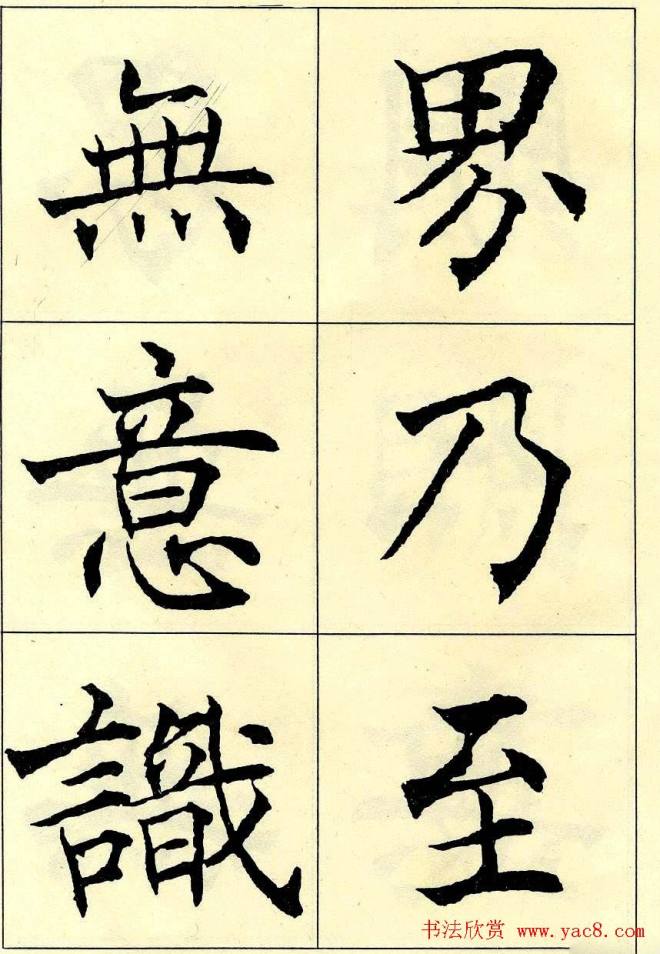 界乃至
無意識
书法欣赏 www.yac8.com